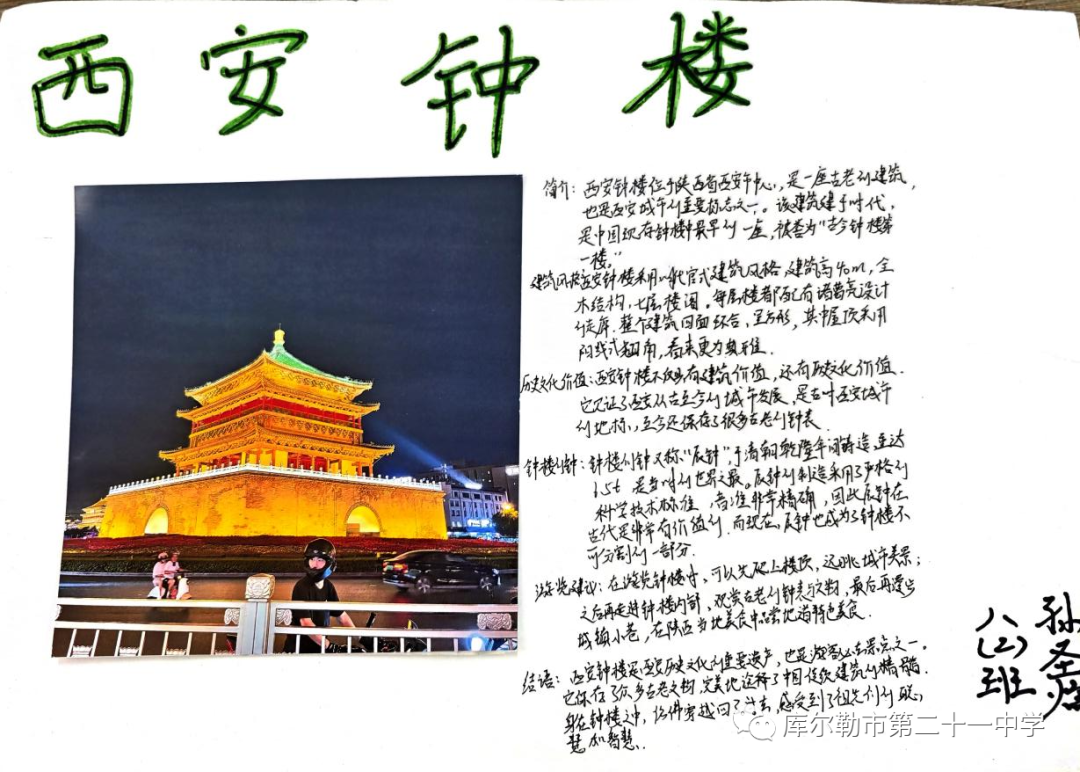 西安钟楼
简介：西安钟楼位于陕西省西安市中心，是一座古老的建筑，
也是西安城市的重要标志之一。该建筑建于时代，
是中国现存钟楼中最早的一座，被誉为“古今钟楼第
一楼。”
建筑风格：西安钟楼采用明代官式建筑风格，建筑高40m，全
木结构，七层楼阁。每层楼都配有诸葛亮设计
的走廊.整个建筑四面环合，呈方形，其中屋顶采用
式翘角，看来更为雄.
历史文化价值：西安钟楼不仅具有建筑价值，还有历史文化价值.
它见证了西安从古至今的城市发展，是古时西安城市
的地标，至今还保存了很多古老的钟表.
钟楼的钟：钟楼的钟又称“辰钟”，于清朝乾隆年间铸造重达
6.5t 是当时的世界之最。辰钟的制造采用了严格的
科学技术标准，音准非常精确，因此辰钟在
古代是非常有价值的.而现在，辰钟也成为了钟楼不
可分割的一部分.
游览建议：在游览钟楼时，可以先爬上楼顶，远眺城市美景；
之后再走进钟楼内部，观赏古老的钟表文物，最后再逛
城镇小巷，在陕西当地美食中品尝地道特色美食.
结语：西安钟楼是西安历史文化的重要遗产，也是游客必去景点之一。
它保存了众多古老文物，完美地诠释了中国传统建筑的精髓.
身在钟楼之中，仿佛穿越回了过去，感受到了祖先们的聪
慧和智慧.
八(2)班
孙圣
库尔勒市第二十一中学